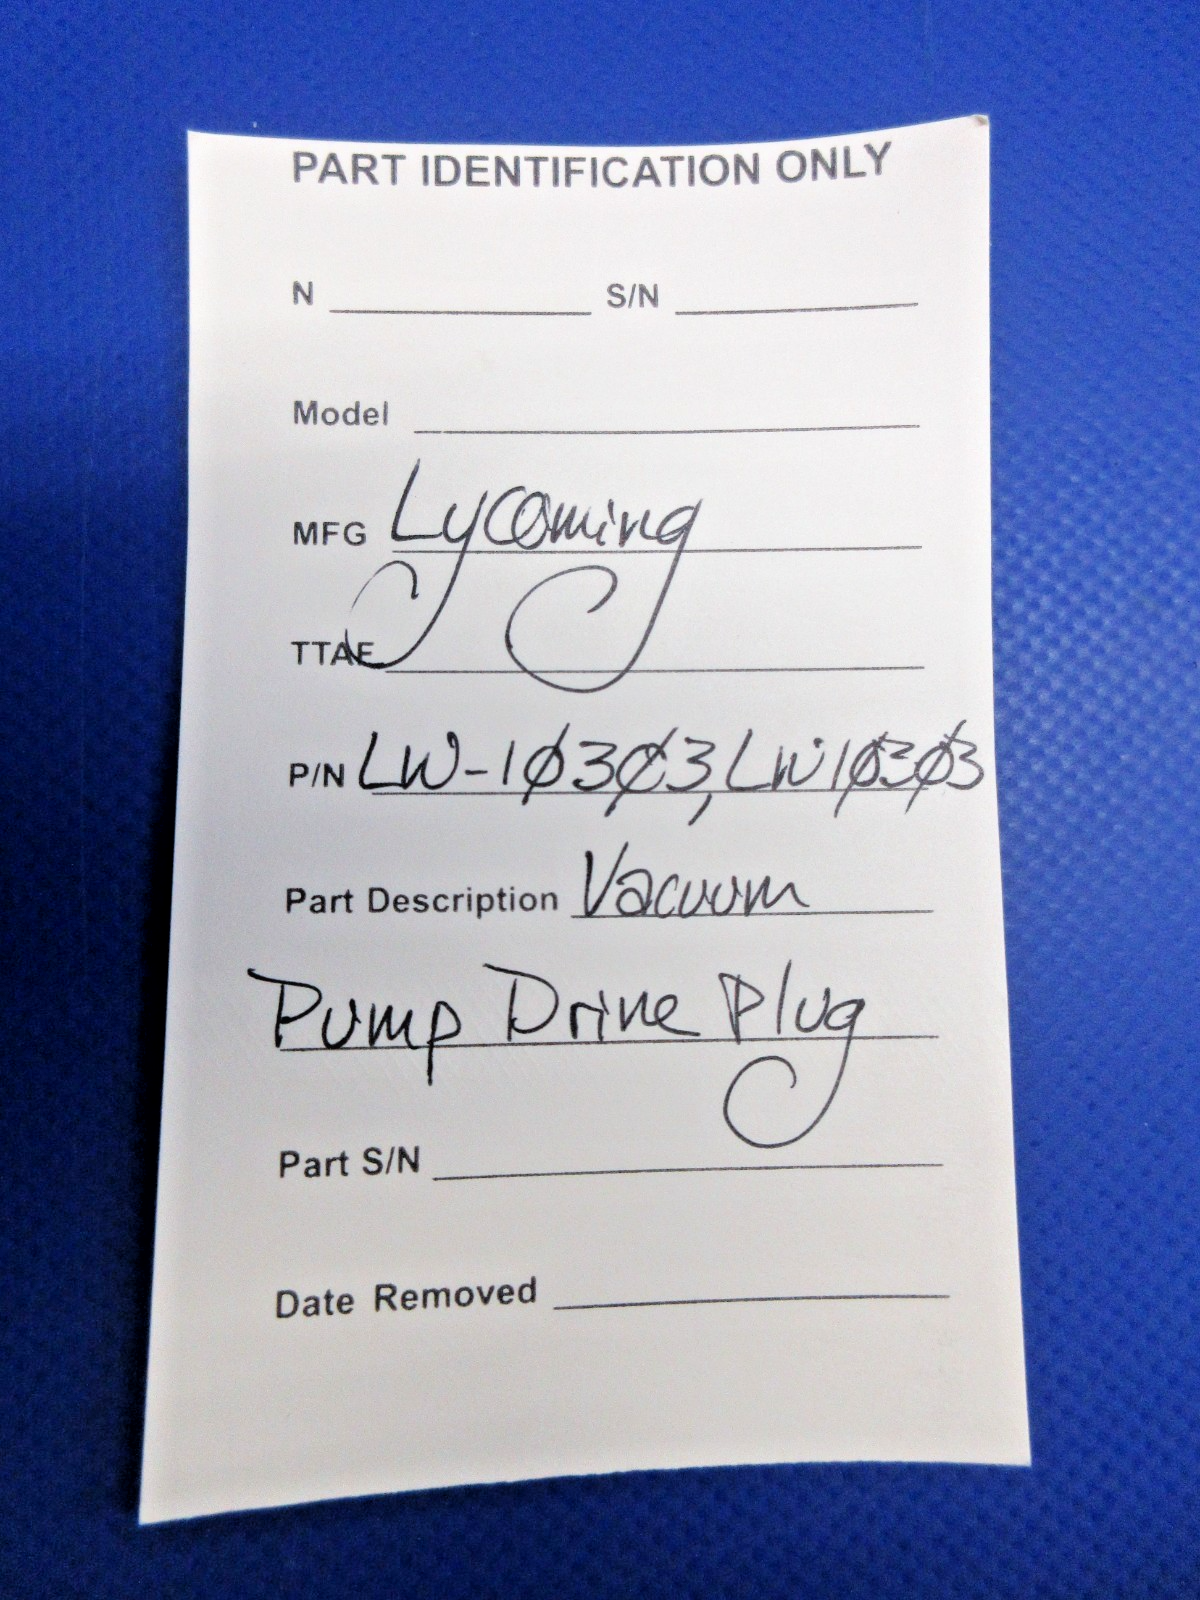 PART IDENTIFICATION ONLY
N S/N
Model
MFG Lycoming
TTAF
P/N LW-10303, LW10303
Part Description Vacuum
Pump Drive Plug
Part S/N
Date Removed